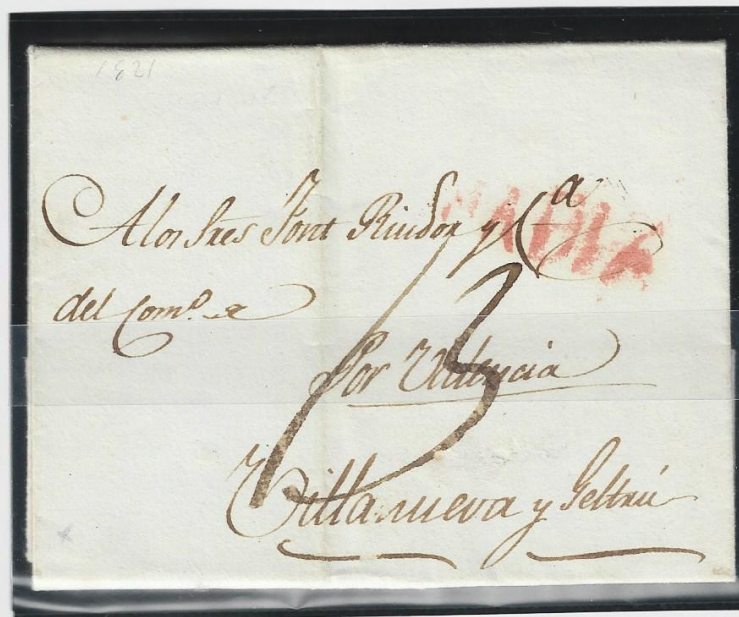 1821
CADIZ
A los Sres Font Riudor y Cª
del Comº. a
13
Por Valencia
Villanueva y Geltrú